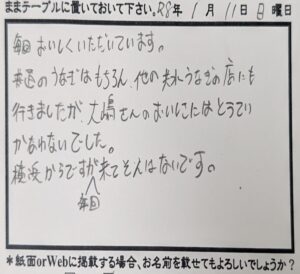 ままテーブルに置いておいて下さい。R8年1月11日日曜日
毎回おいしくいただいています。
のうなぎはもちろん、他のうなぎの店にも
行きましたが、大嶋さんのおいしさにはとうてい
かなわないでした。
横浜からですが毎回来てそんはないです。
*紙面orWebに掲載する場合、お名前を載せてもよろしいでしょうか?